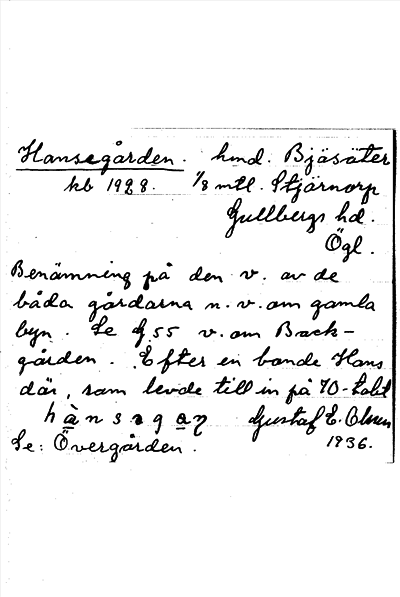 Hansegården. hmd. Bjäsäter
kb 1928. 1/8 mtl. Stjärnorp
Gullbergs hd.
Ögl.
Benämning på den v. av de
båda gårdarna n.v. om gamla
byn. Se G 55 v. om Back-
gården. Efter en bonde Hans
där, som levde till in på 70-talet
Gustaf E. Olsson
Se: Övergården. 1936.